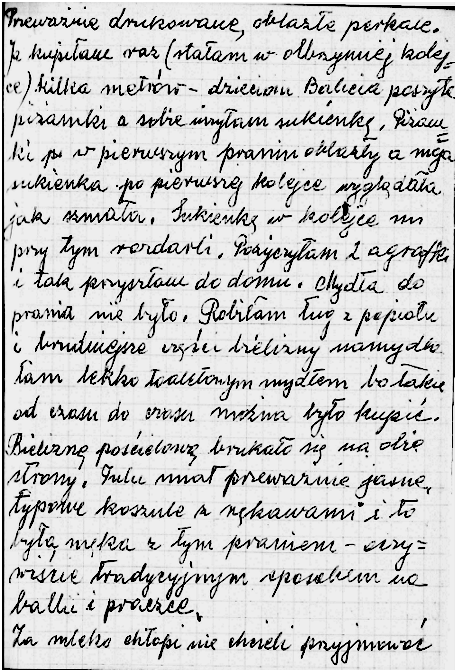 Przeważnie drukowane, oblazłe perkale.
Ja kupiłam raz (stałam w olbrzymiej kolej-
ce) kilka metrów - dzieciom Babcia poszyła
piżamki a sobie uszyłam sukienkę. Piżam-
ki po w pierwszym praniu oblazły a moja
sukienka po pierwszej kolejce wyglądała
jak szmata. Sukienkę w kolejce mi
przy tym rozdarli. Pożyczyłam 2 agrafki
i tak przyszłam do domu. Mydła do
prania nie było. Robiłam ług z popiołu
i brudniejsze części bielizny namydla-
łam lekko toaletowym mydłem bo takie
od czasu do czasu można było kupić.
Bieliznę pościelową brukało się na obie
strony. Julu miał przeważnie jasne,
typowe koszule z rękawami i to
była męka z tym praniem - oczy-
wiście tradycyjnym sposobem na
balii i pralce.
Za mleko chłopi nie chcieli przyjmować